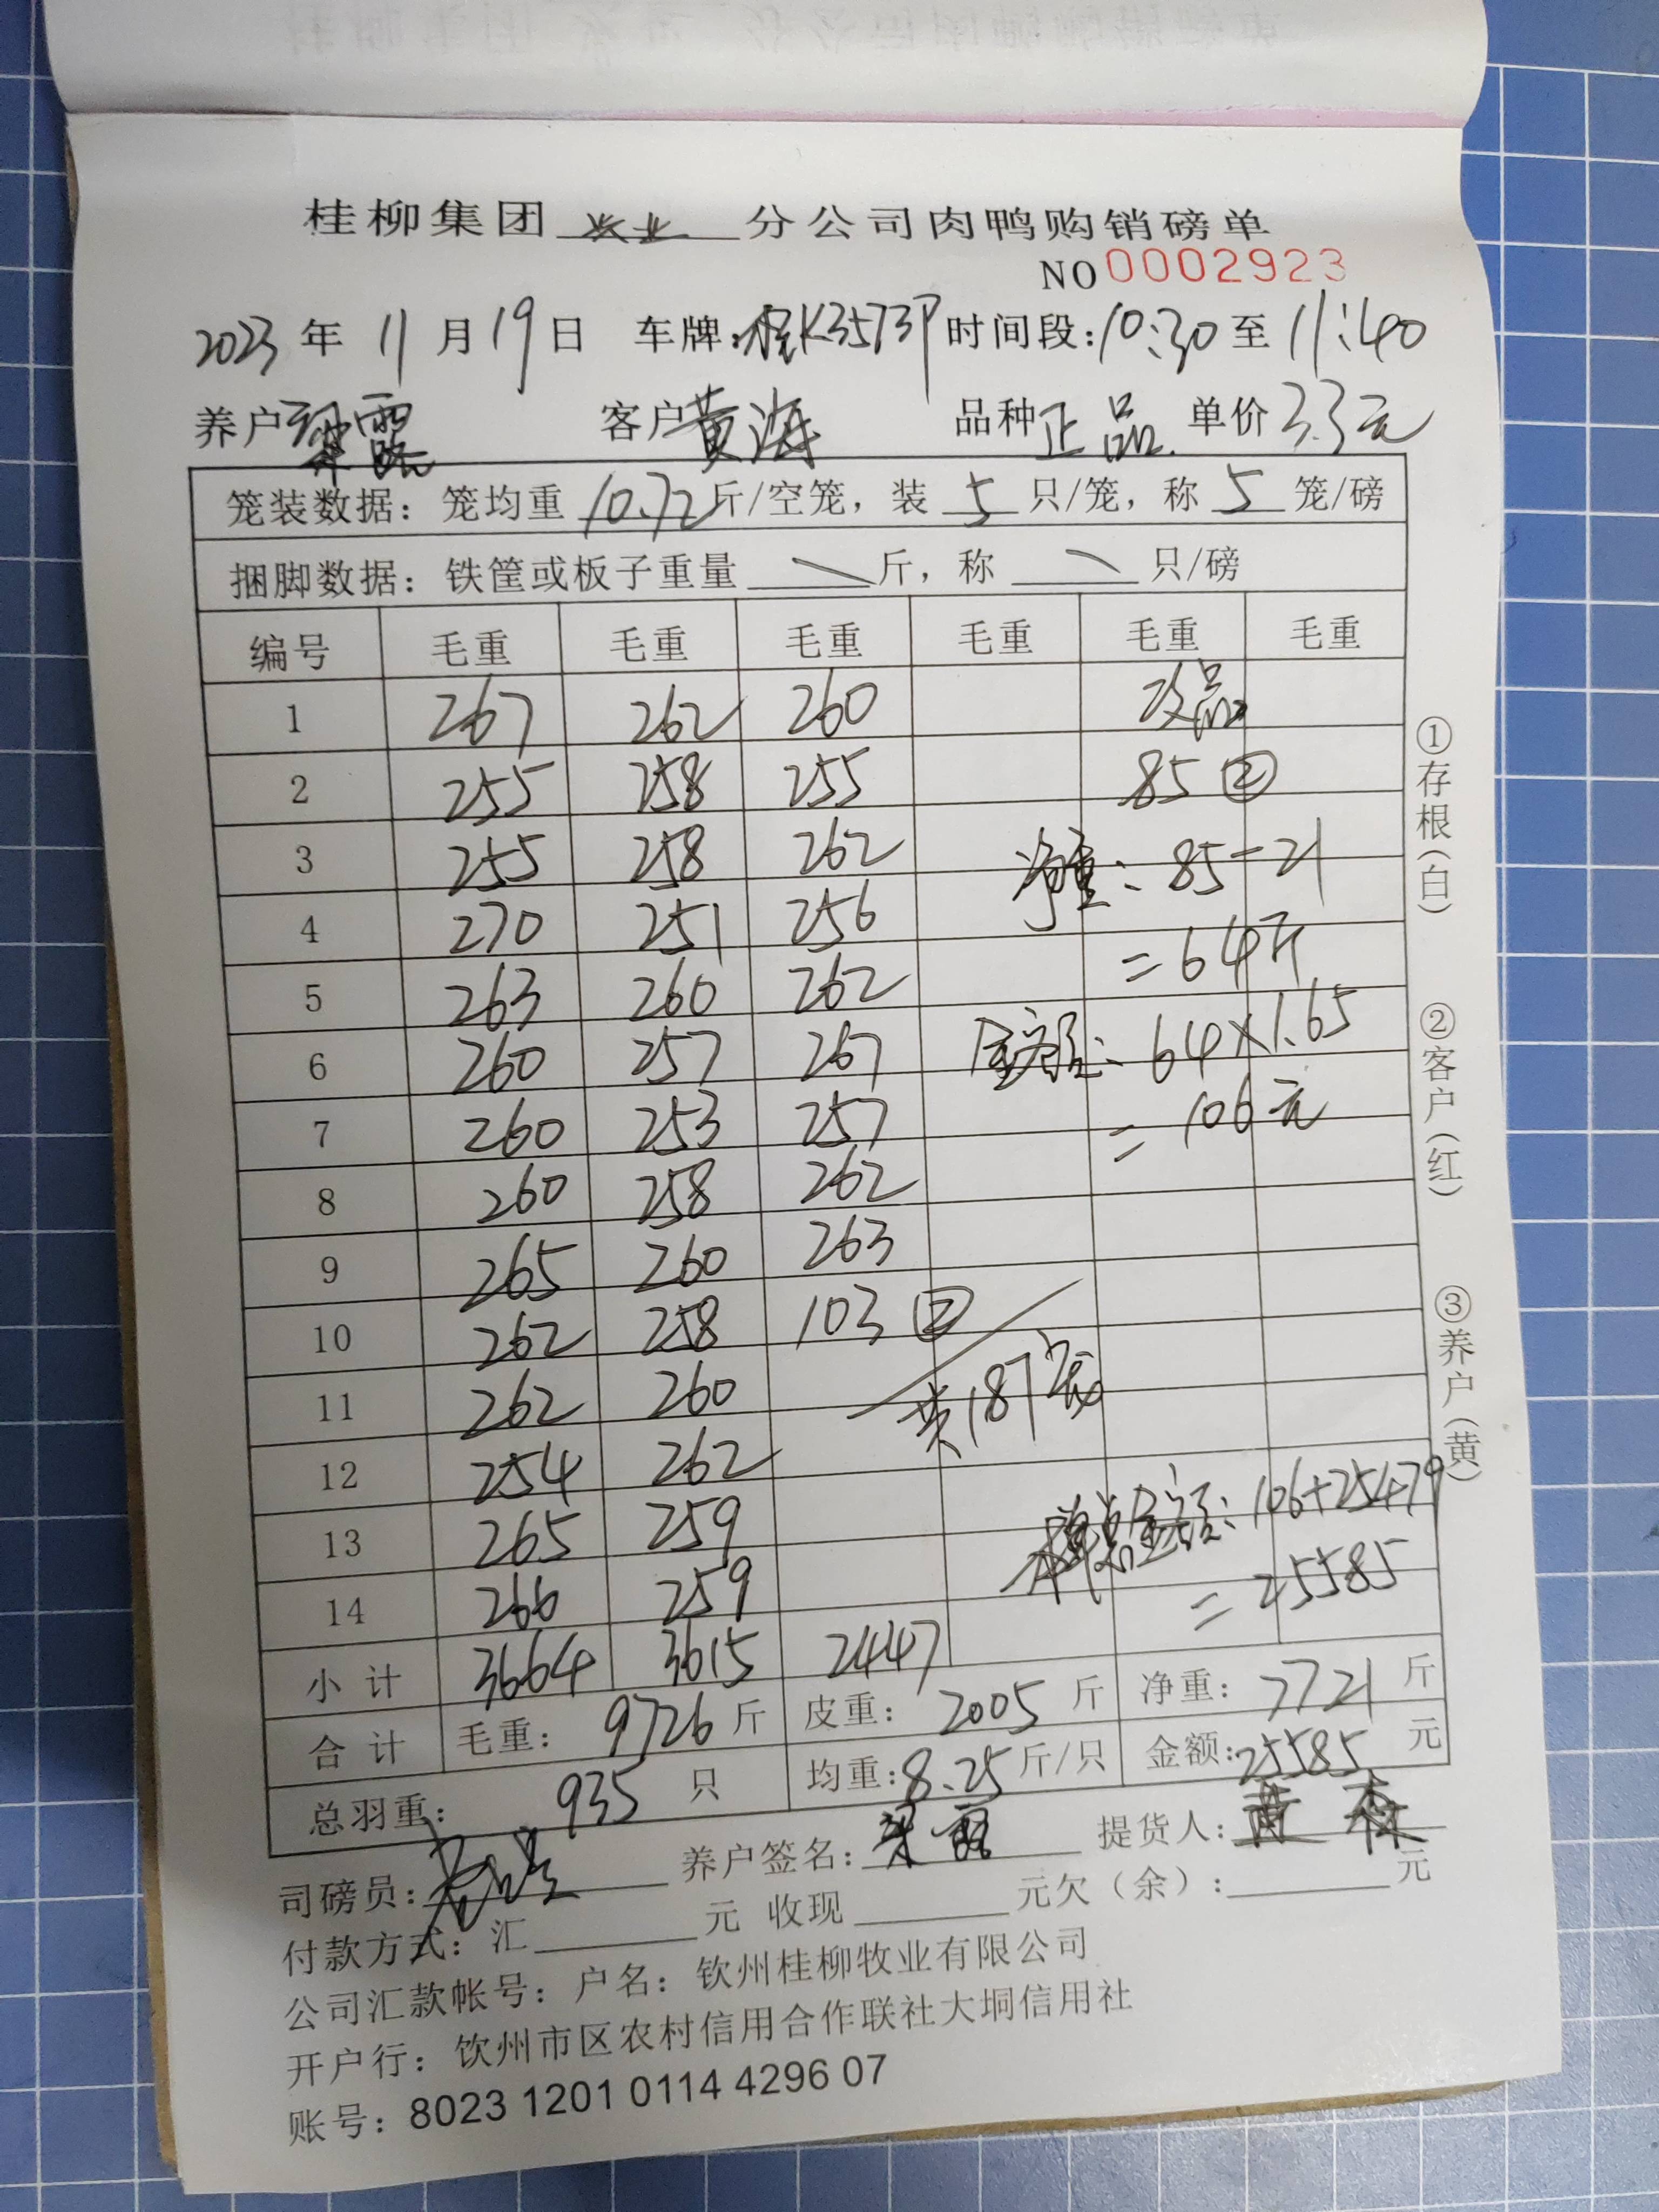 桂柳集团 牧业 分公司肉鸭购销磅单
NO 0002923
2023 年 11 月 19 日 车牌:桂K3573P 时间段:10:30 至 11:40
养户 梁露 客户 黄海 品种 正品 单价 3.3元
笼装数据：笼均重 10.72 斤/空笼，装 5 只/笼，称 5 笼/磅
捆脚数据：铁筐或板子重量 斤，称 只/磅
编号 毛重 毛重 毛重 毛重 毛重 毛重
1 267 262 260 次品
2 255 258 255 85 ②
3 255 258 262 净重: 85-21
4 270 251 256 =64斤
5 263 260 262
6 260 257 267 金额: 64×1.65
7 260 253 257 =106元
8 260 258 262
9 265 260 263
10 262 258 103 ②
11 262 260 共187笼
12 254 262
13 265 259 总金额: 106+25479
14 266 259 =25585
小计 3664 3615 2447
合计 毛重: 9726 斤 皮重: 2005 斤 净重: 7721 斤
总羽重: 935 只 均重: 8.25 斤/只 金额: 25585 元
司磅员: 养户签名: 梁露 提货人:
付款方式: 汇 元 收现 元欠（余）: 元
公司汇款帐号：户名：钦州桂柳牧业有限公司
开户行：钦州市区农村信用合作联社大垌信用社
账号：8023 1201 0114 4296 07
①存根(白)
②客户(红)
③养户(黄)